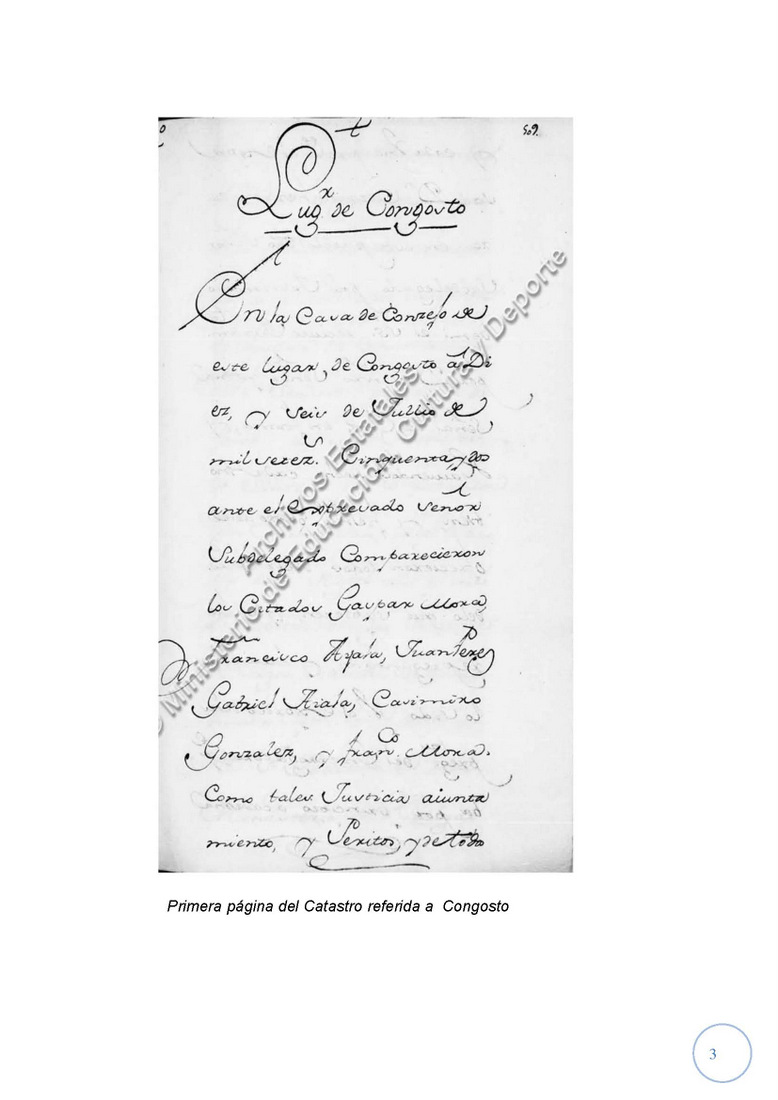 509.
Lugr de Congosto
En la Casa de Conzejo de
este lugar, de Congosto á Di
ez, y seis de Jullio de
mil setezs. Cinquenta y dos
ante el Expresado Señor
Subdelegado Comparecieron
los Citados Gaspar Mora,
Francisco Ayala, Juan Perez
Gabriel Aiala, Casimiro
Gonzalez, y Franco. Mora.
Como tales Justicia aiunta
miento, y Peritos, y de toda
© Ministerio de Educación, Cultura y Deporte
Archivos Estatales
Primera página del Catastro referida a Congosto
3